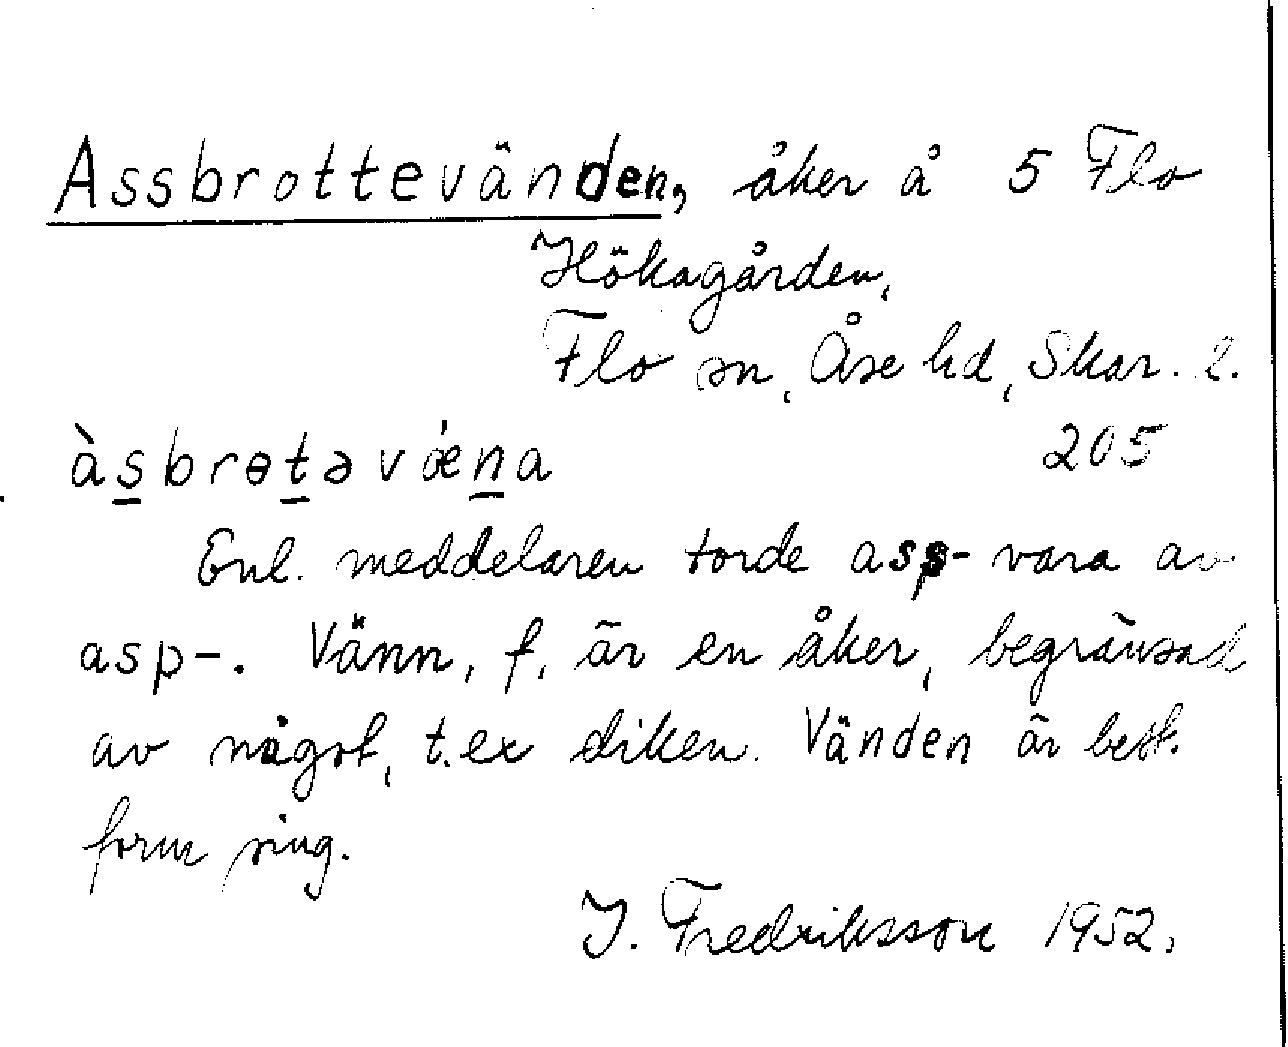 Assbrottevänden, åker å 5 Flo
Hökagården,
Flo sn, Åse hd, Skar. l.
àsbrɵtəvǿna 205
Enl. meddelaren torde ass- vara av
asp-. Vänn, f, är en åker, begränsad
av något, t.ex diken. Vänden är best.
form sing.
J. Fredriksson 1952.